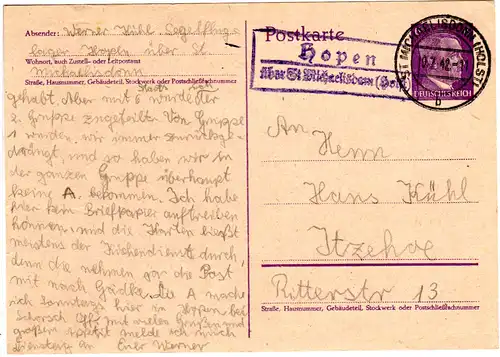 Absender: Werner Kühl Segelflug-
lager Hopen über St
Wohnort, auch Zustell- oder Leitpostamt
Michaelisdonn
Straße, Hausnummer, Gebäudeteil, Stockwerk oder Postschließfachnummer
gehabt. Aber mit 6 wurde der
2. Gruppe zugeteilt. Von Gruppe
1 wurden wir immer zurückge-
drängt, und so haben wir in
der ganzen Gruppe überhaupt
keine A. bekommen. Ich habe
hier kein Briefpapier auftreiben
können und die Karten
meistens der Küchendienst durch,
denn die nehmen ja die Post
mit nach Gudke. Die A mache
ich Sonntags hier in Hopen bei
Schorsch Off mit vielen Grüßen und
großem Appetit melde ich mich
Dienstag an Euer Werner
Postkarte
Hopen
über St Michaelisdonn (Holst)
ST MICHAELISDONN (HOLST)
.7.42.
b
DEUTSCHES REICH
An
Herrn
Hans Kühl
Itzehoe
Ritterstr 13
Straße, Hausnummer, Gebäudeteil, Stockwerk oder Postschließfachnummer